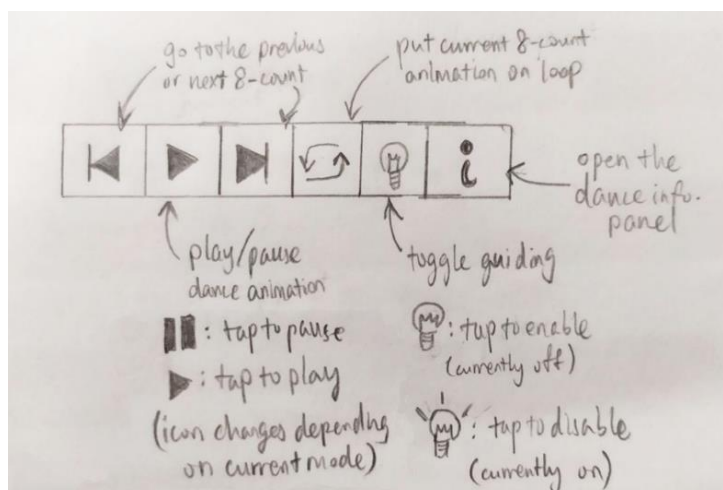 go to the previous
or next 8-count
put current 8-count
animation on loop
i
open the
dance info.
panel
play/pause
dance animation
toggle guiding
: tap to pause
: tap to play
(icon changes depending
on current mode)
: tap to enable
(currently off)
: tap to disable
(currently on)